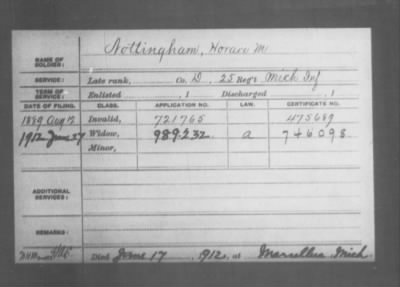 Nottingham, Horace M
NAME OF SOLDIER:
SERVICE: Late rank, Co. D, 25 Reg't Mich Inf
TERM OF SERVICE: Enlisted , 1 Discharged , 1
DATE OF FILING. CLASS. APPLICATION NO. LAW. CERTIFICATE NO.
1889 Aug 12 Invalid, 721765 475689
1912 June 27 Widow, 989.232 a 746098
Minor,
ADDITIONAL SERVICES:
REMARKS:
Died June 17 1912, at Marcellus Mich